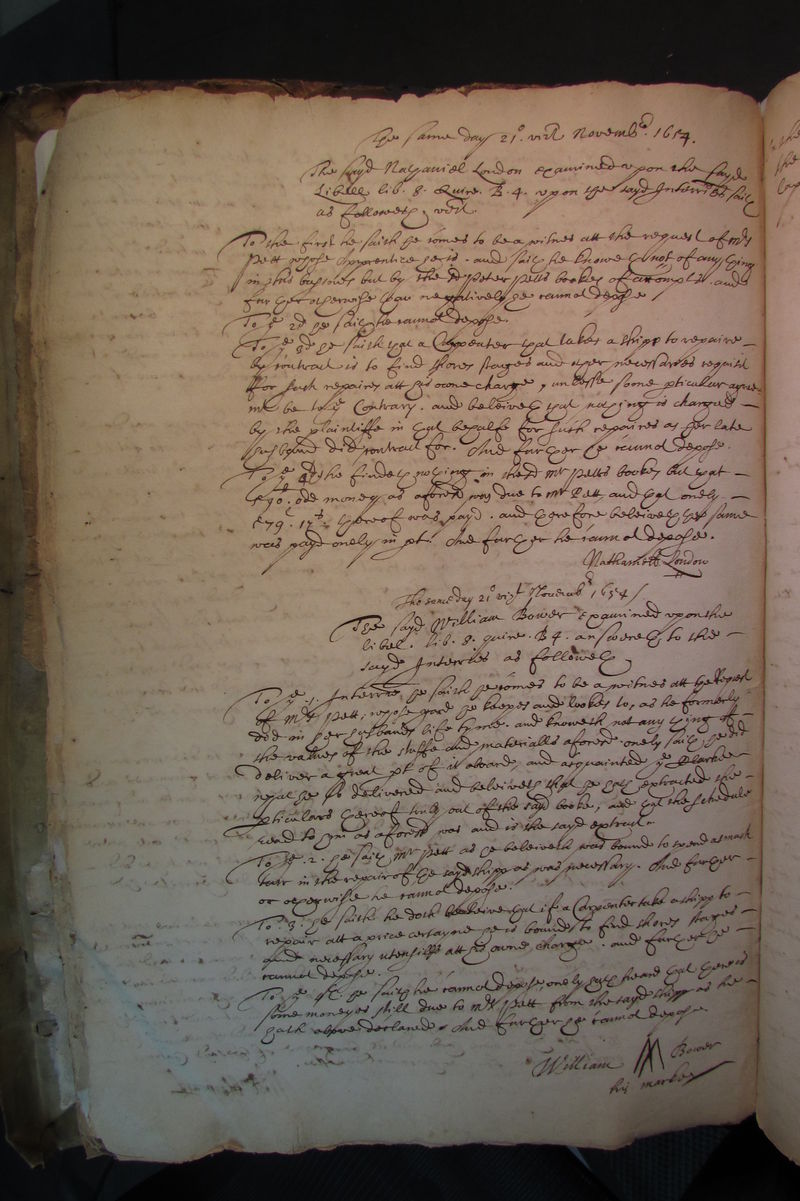 The same day 21º. vizt. Novembr. 1654.
The sayd Nathaniel London examined upon the sayd
Libell lib. 8. Quire. B. 4. upon the sayd Interries. saith
as followeth, vizt.
To the first he saith he comes to be a witnes att the request of Mrs
Pett whose Apprentice he is. and saith he knoweth not of any thing
in this busines but by the sd Peter Petts bookes of attompts. and
further otherwise than negatively he cannot depose /
To ye 2d he saith he cannot depose.
To ye 3d he saith that a Carpenter that takes a shipp to repaire
by contract is to find shores stages and other necessaries requisit
for such repaires att his owne charge, unlesse some pticular agree-
mt be to ye Contrary. and beleiveth that nothing is charged
by the plaintiffe in that behalfe for such repaires as her late
husband did contract for. And further he cannot depose.
To ye 4th he findeth nothing in the sd Mr Petts bookes but that
£90. odd money as aforesd was due to Mr Pett and that onely
£79. 17s. thereof was payd. and therefore beleiveth the same
was payd onely in pt. And further he cannot depose.
Nathaniell London
The same day 21º vizt Novembr 1654 /
The sayd William Bower examined upon the
libel. lib. 8. quire. B 4. answereth to the
sayd Interries as followeth
To ye 1. Interrie. he saith he comes to be a witnes att the Request
of Mrs Pett, whose yard he keepes and lookes to, as he formerly
did in her husbands life tyme. and knoweth not any thing of
the values of the stuffe and materialls aforesd. onely saith he did
deliver a great pt of it aboard, and acquainted ye Clarke
what he so delivered and beleiveth that he hath extracted the
pticulars thereof truly out of the sayd booke, and that the schedule
read to him as aforesd was and is the sayd extract.
To ye. 2. he saith Mr Pett as he beleiveth was bound to spend as much
tarr in the repair of the sayd shipp as was necessary. And further
or otherwise he cannot depose.
To. 3. he saith he doth beleive that if a Carpenter take a shipp to
repair att a price certayne he is bound to find shores stages
and necessary utensills att his owne charge. and further he
cannot depose.
To ye he saith he cannot depose, onely hath heard that there is
some moneyes still due to Mrs Pett from the sayd shipp as he
hath above declared. And further he cannot depose.
William Bower
his marke